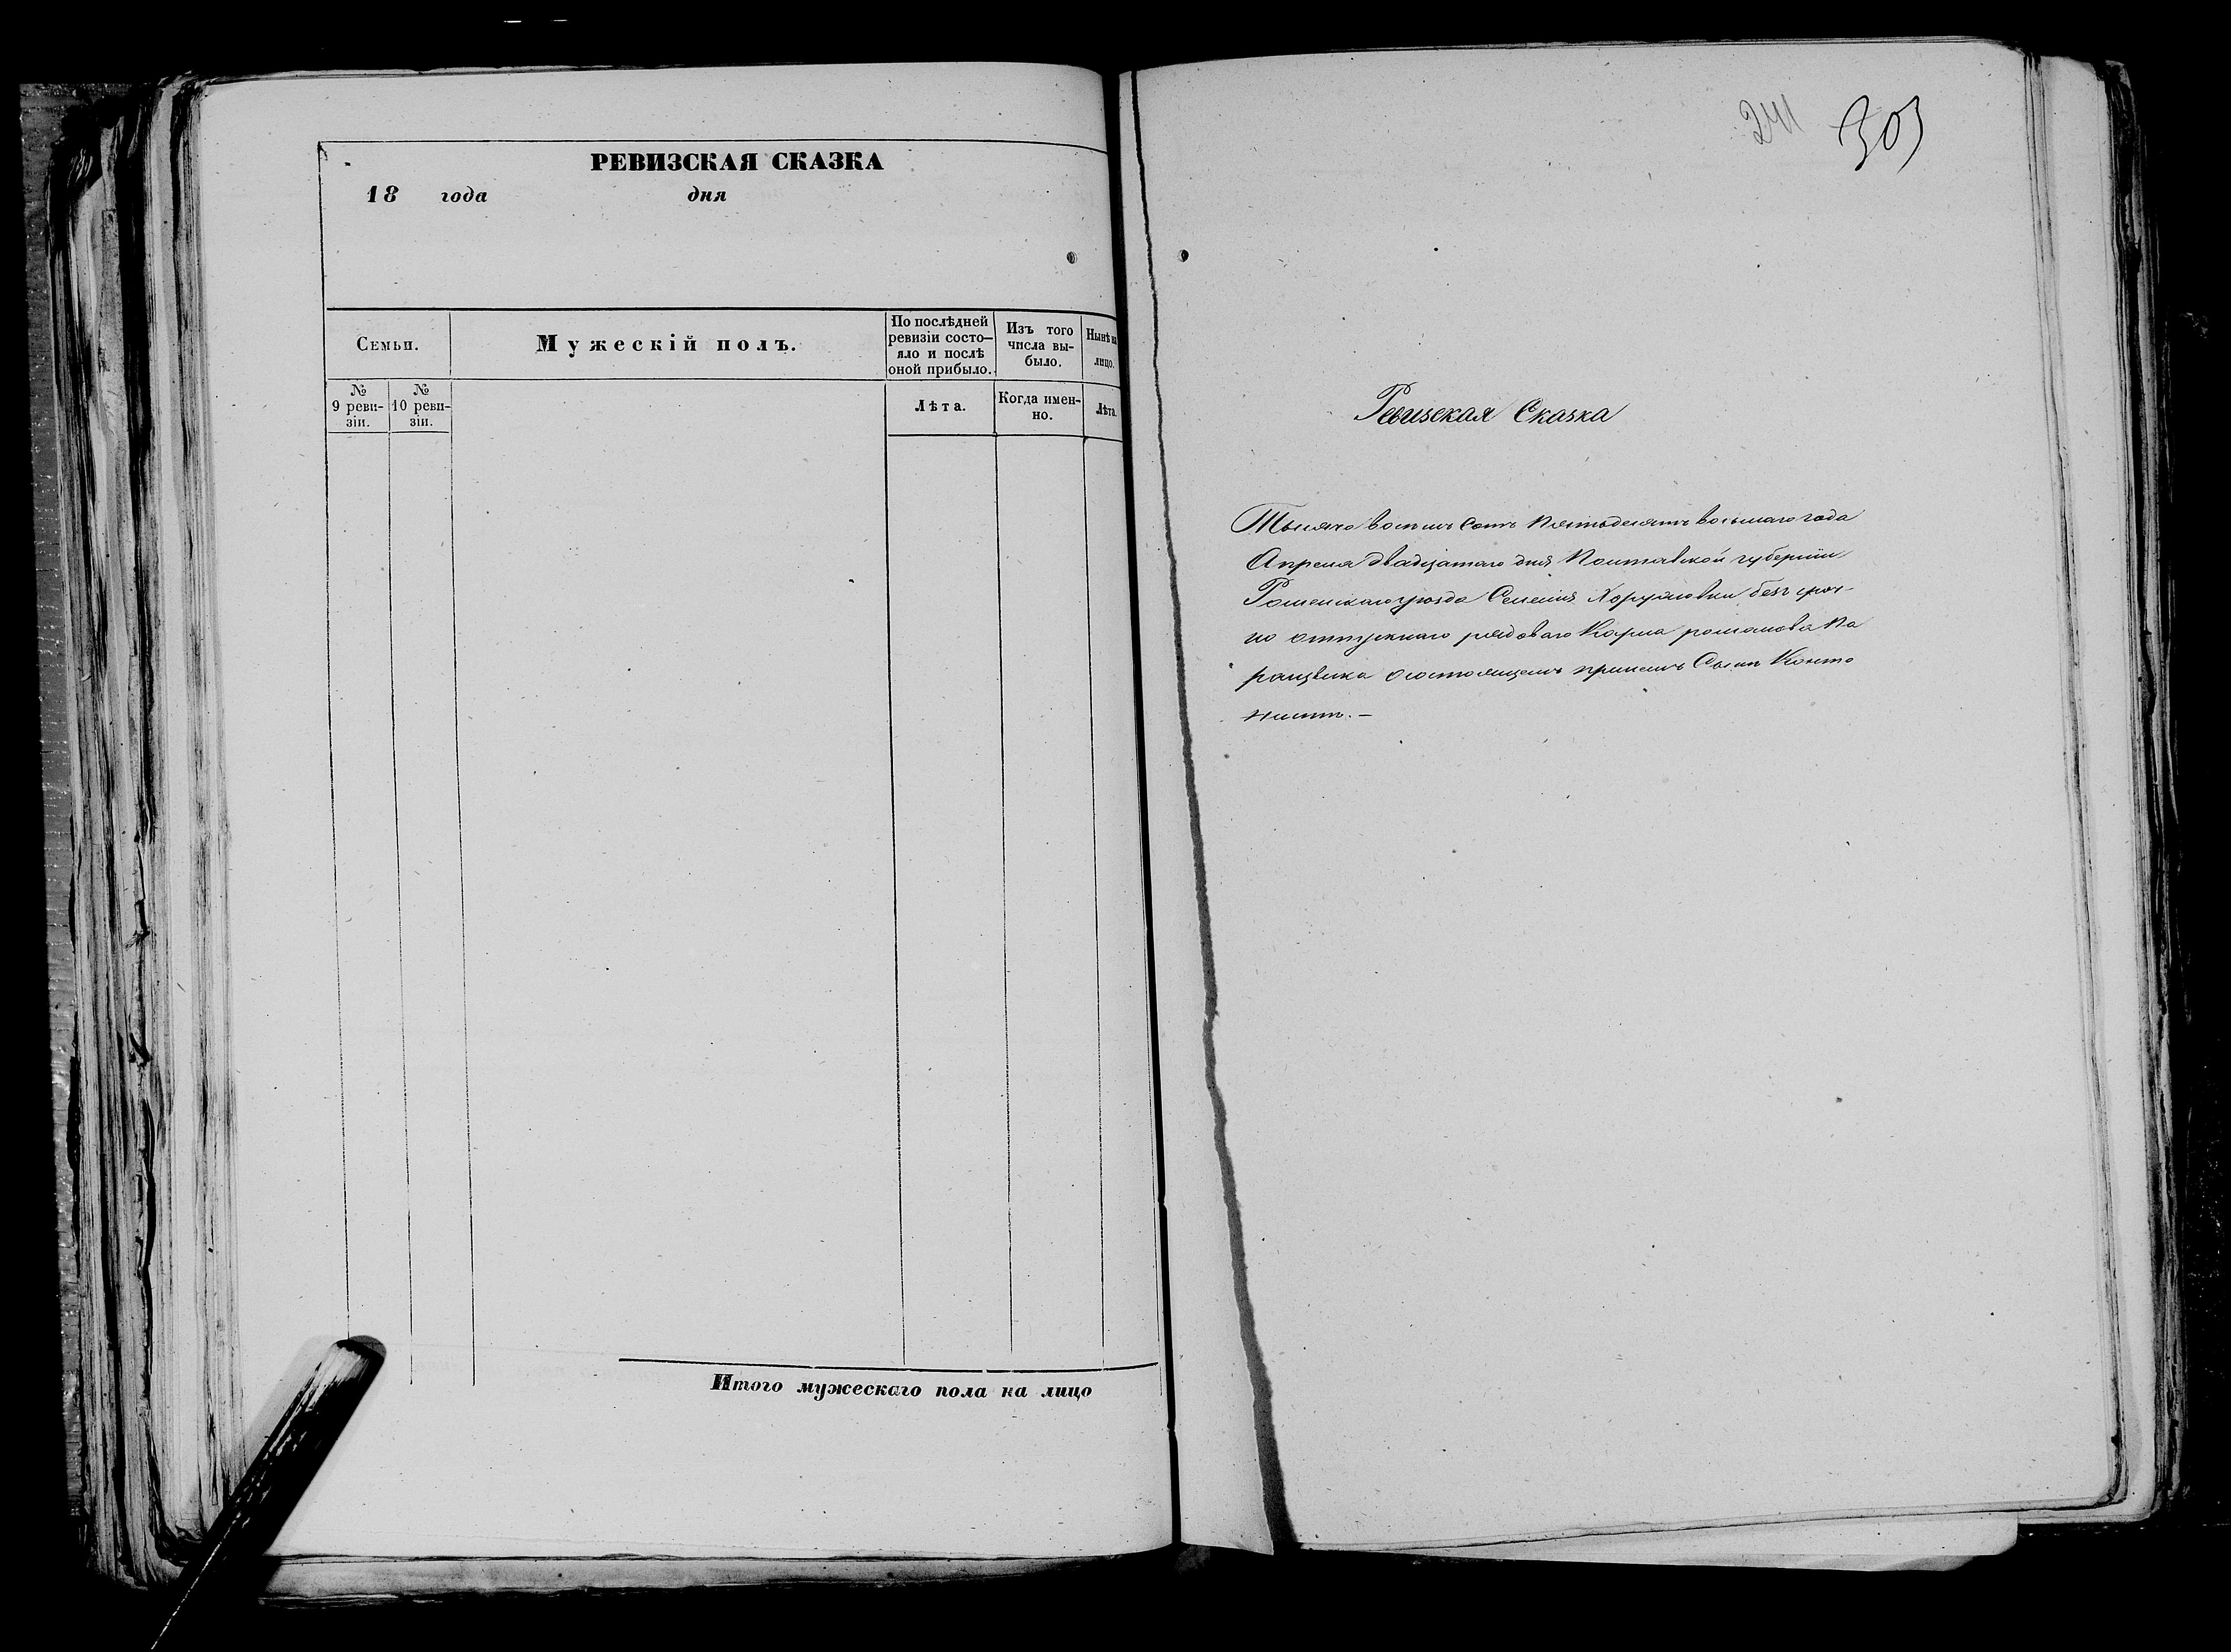 РЕВИЗСКАЯ СКАЗКА
18 года дня
Семьи.
Мужескій полъ.
По послѣдней ревизіи состо—яло и послѣ оной прибыло.
Изъ того числа вы-было.
Нынѣ на лицо.
№ 9 реви-зіи.
№ 10 реви-зіи.
Лѣта.
Когда имен-но.
Лѣта.
Итого мужескаго пола на лицо
241 303
Ревизская Сказка
Тысяча восемь Сотъ Пятьдесятъ восьмаго года
Апреля двадцатаго дня Полтавской губерніи
Роменскаго уезда Селенія Хоружовки безъ сроч-
но отпускнаго рядоваго Карпа романова Па
ранцвика о состоящемъ принемъ Сынъ Канто
нистъ.—